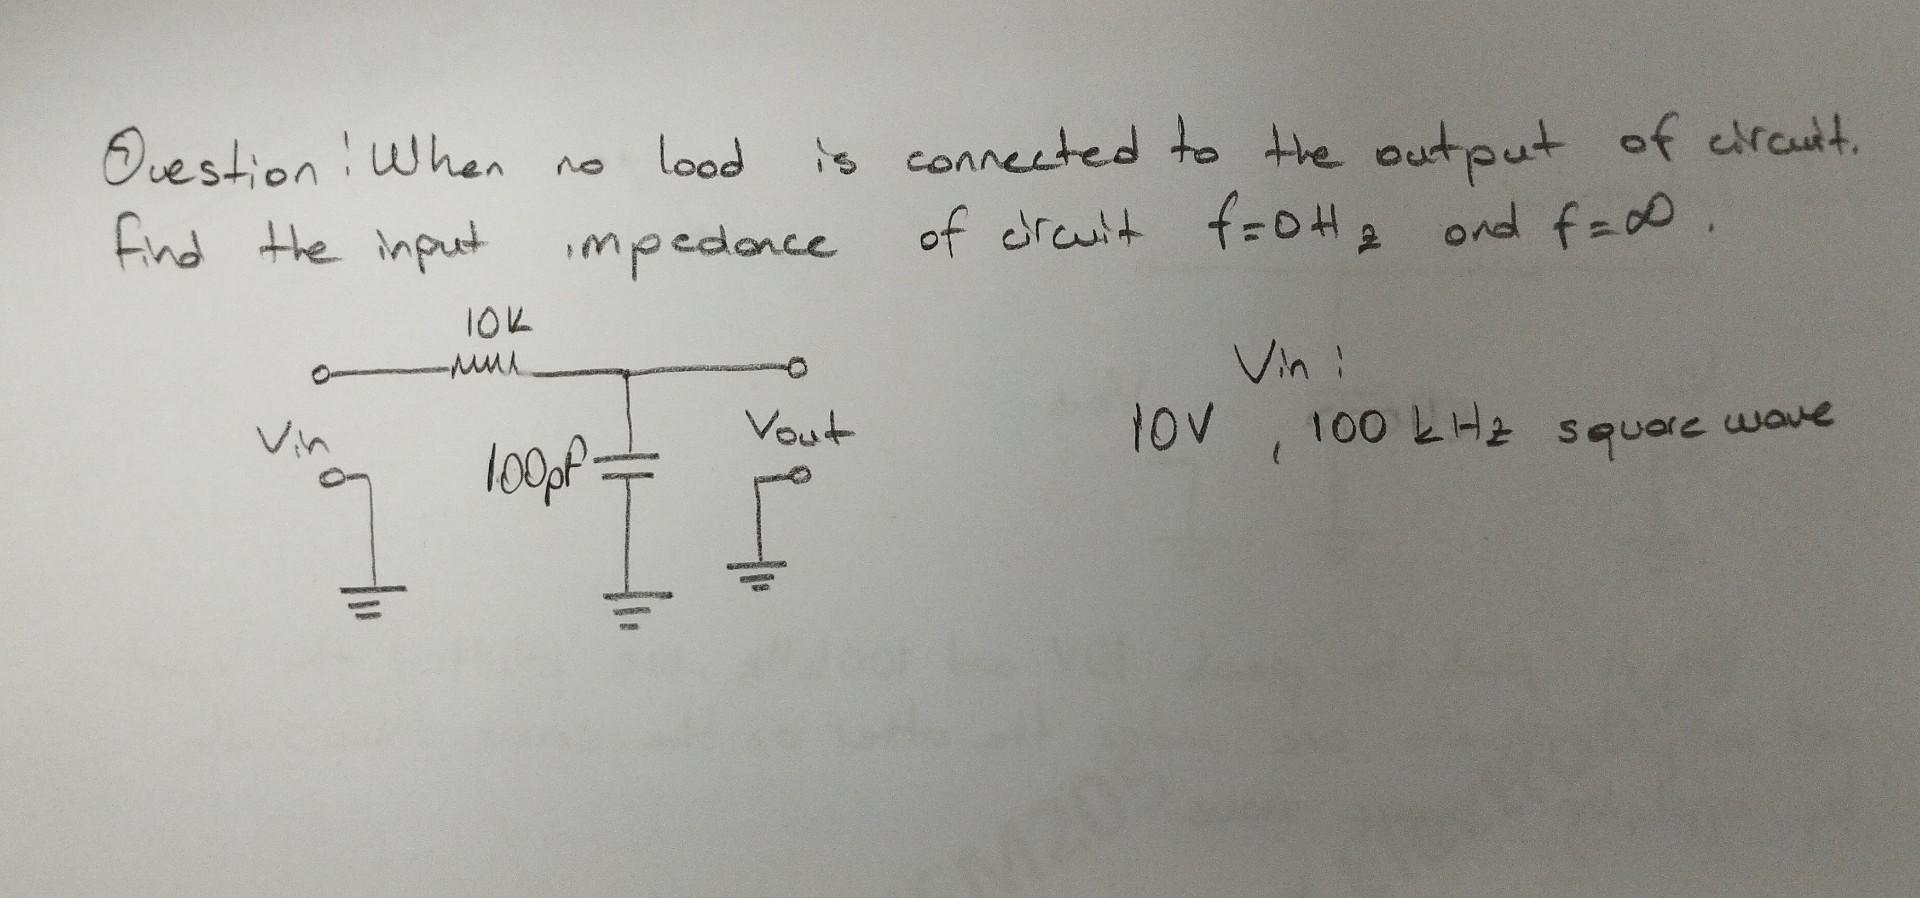 Question: When no load is connected to the output of circuit.
find the input impedance of circuit f=0Hz and f=∞.
10k
Vin:
Vin
Vout
10V, 100 kHz square wave
100pF